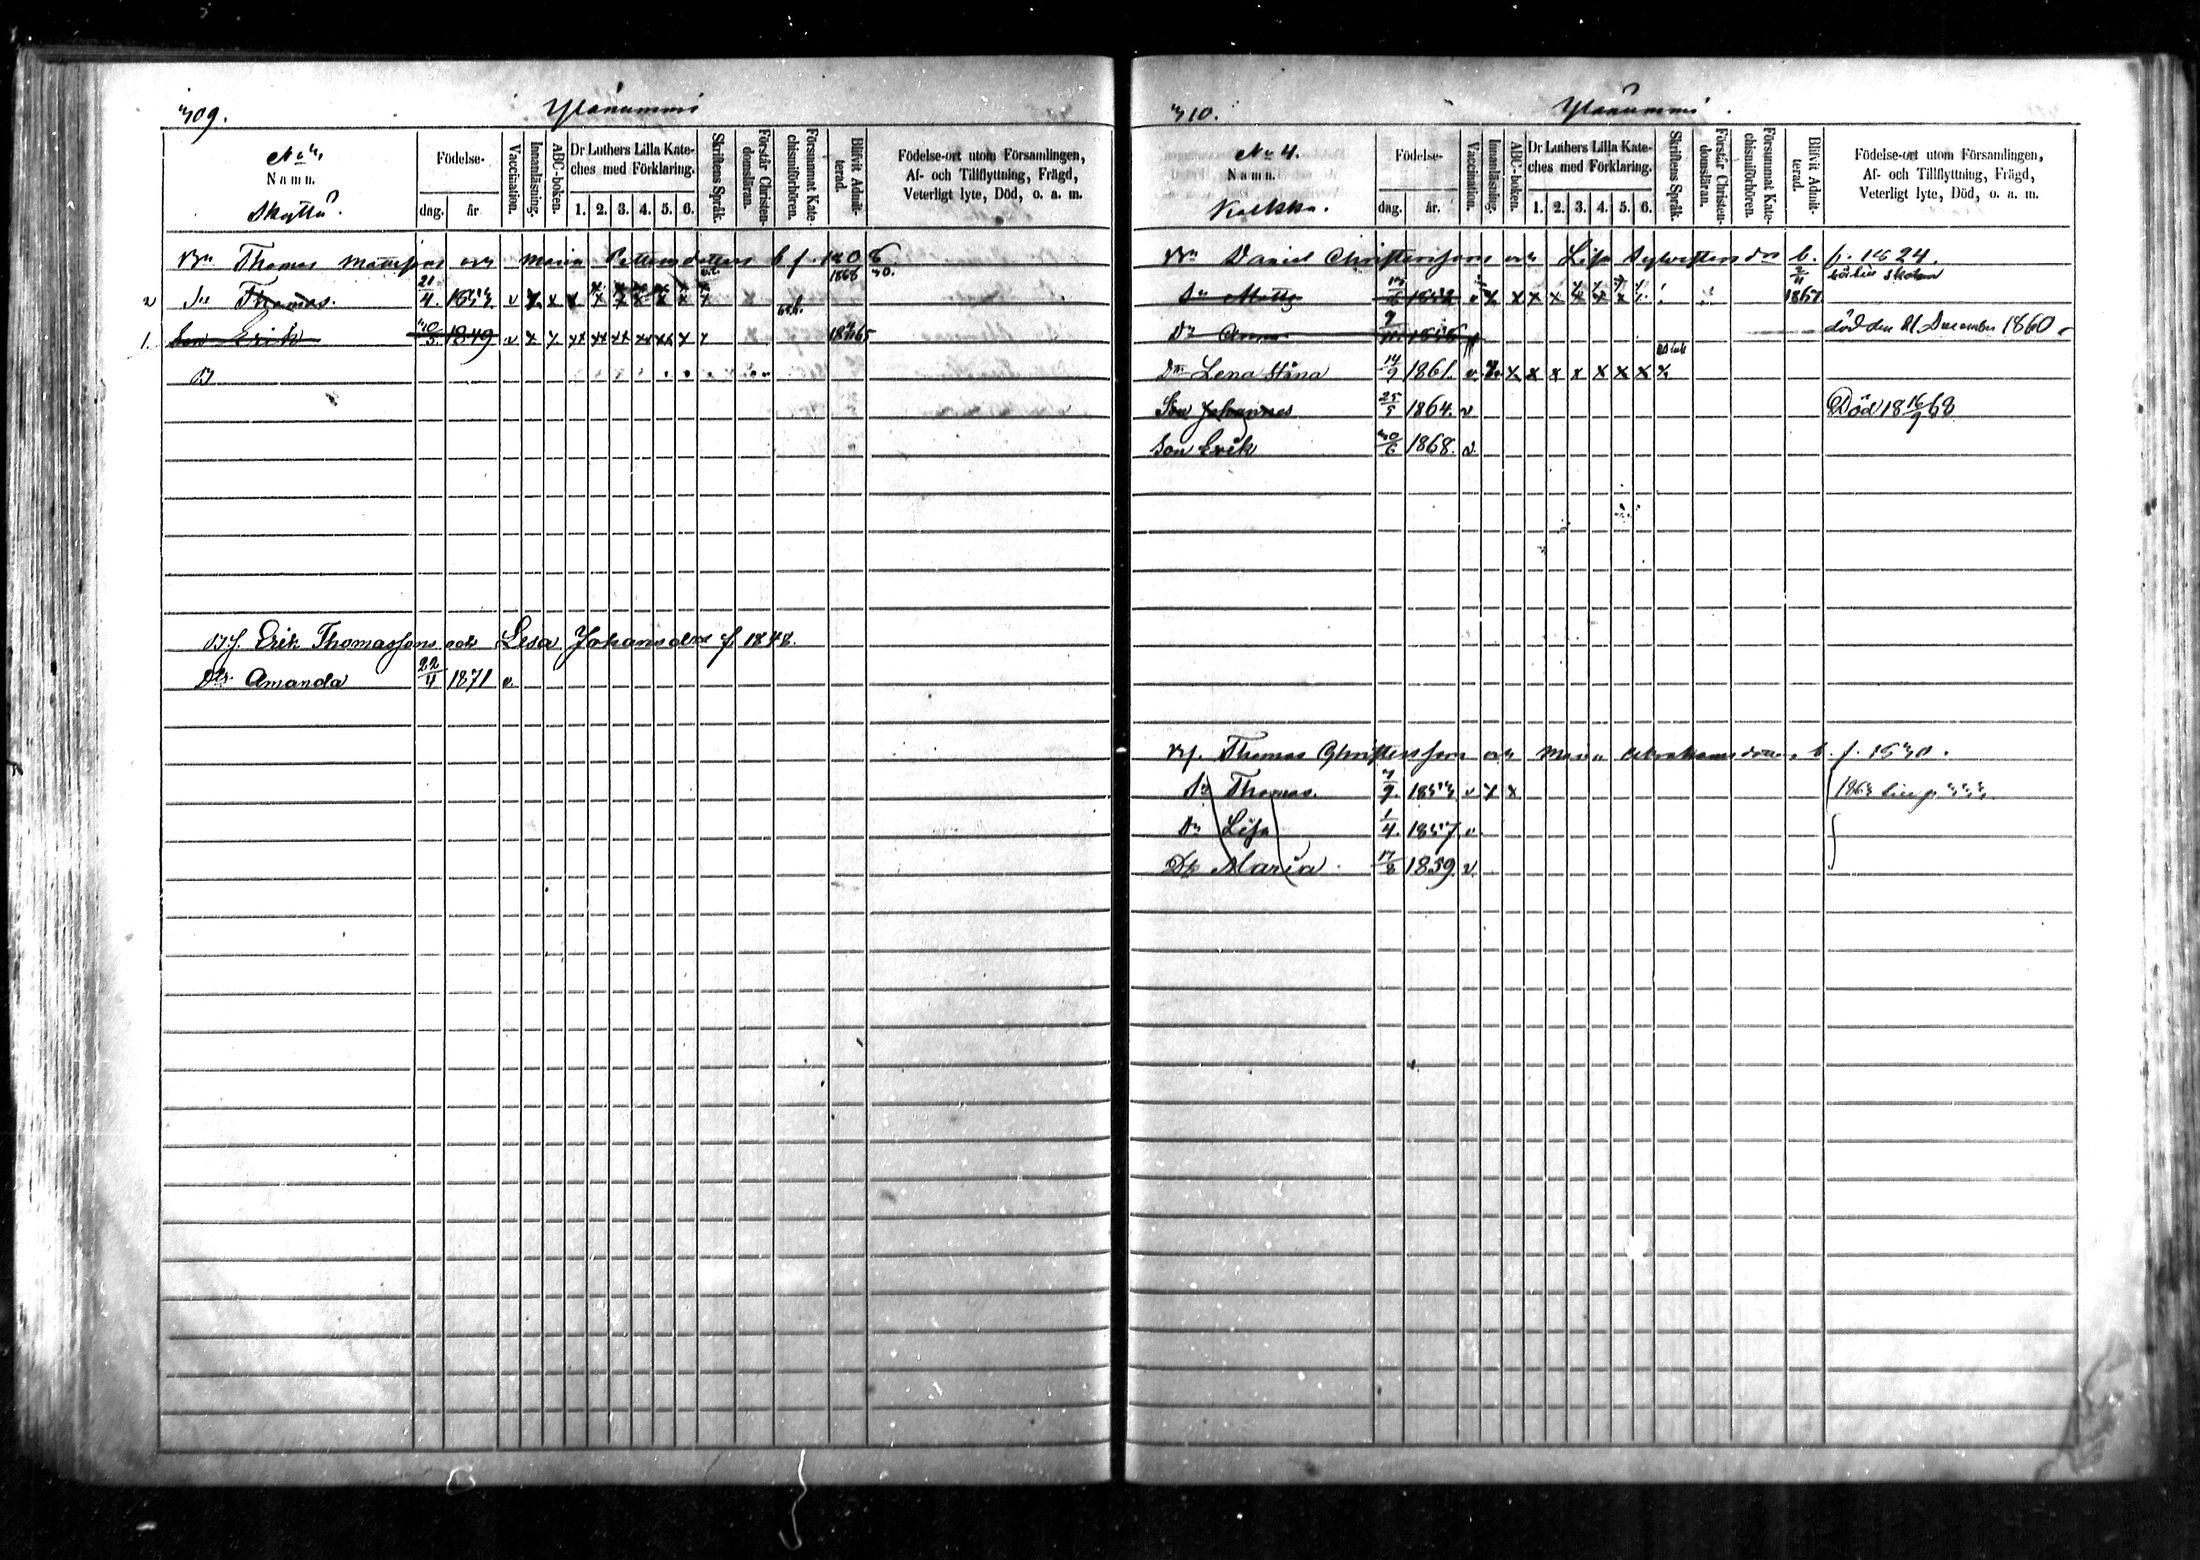 309.
Ylånummi
No 3
Namn.
Skyttä.
Födelse-
dag.
år
Vaccination.
Innanläsning.
ABC-boken.
Dr Luthers Lilla Kate-
ches med Förklaring.
1. 2. 3. 4. 5. 6.
Skriftens Språk.
Förstår Christen-
domsläran.
Försummat Kate-
chismiförhören.
Blifvit Admit-
terad.
Födelse-ort utom Församlingen,
Af- och Tillflyttning, Frägd,
Veterligt lyte, Död, o. a. m.
Thomas Mattssons och Maria Pettersdotters b f. 1806
2 Sn Thomas. 21/4. 1853 v x x x x x x x x x x 1868
1. Son Erik 1849 v x x xx xx xx xx xx x x 1865
Bf. Erik Thomassons och Lisa Johansdrs f. 1848.
Dtr. Amanda 22/4 1871 v.
310.
Ylånummi.
No 4.
Namn.
Kalkka.
Födelse-
dag.
år.
Vaccination.
Innanläsning.
ABC-boken.
Dr Luthers Lilla Kate-
ches med Förklaring.
1. 2. 3. 4. 5. 6.
Skriftens Språk.
Förstår Christen-
domsläran.
Försummat Kate-
chismiförhören.
Blifvit Admit-
terad.
Födelse-ort utom Församlingen,
Af- och Tillflyttning, Frägd,
Veterligt lyte, Död, o. a. m.
Daniel Christerssons och Lisa Sylvesters drs b. f. 1824.
Sn Matts 1852 v x x x x x x x x 1867.
Dr Anna död den 21 December 1860
Dr Lena Stina 14/9 1861. v. x x x x x x x x x
Son Johannes 25/5 1864. v Död 18 16/9 68
Son Erik 30/6 1868. v
Bf. Thomas Christersson och Maria Abrahamsdotter b. f. 1830.
Sn Thomas. 1853 v x x 1863
Dr Lisa 1/4. 1857 v.
Dr Maria 17/8 1859. v